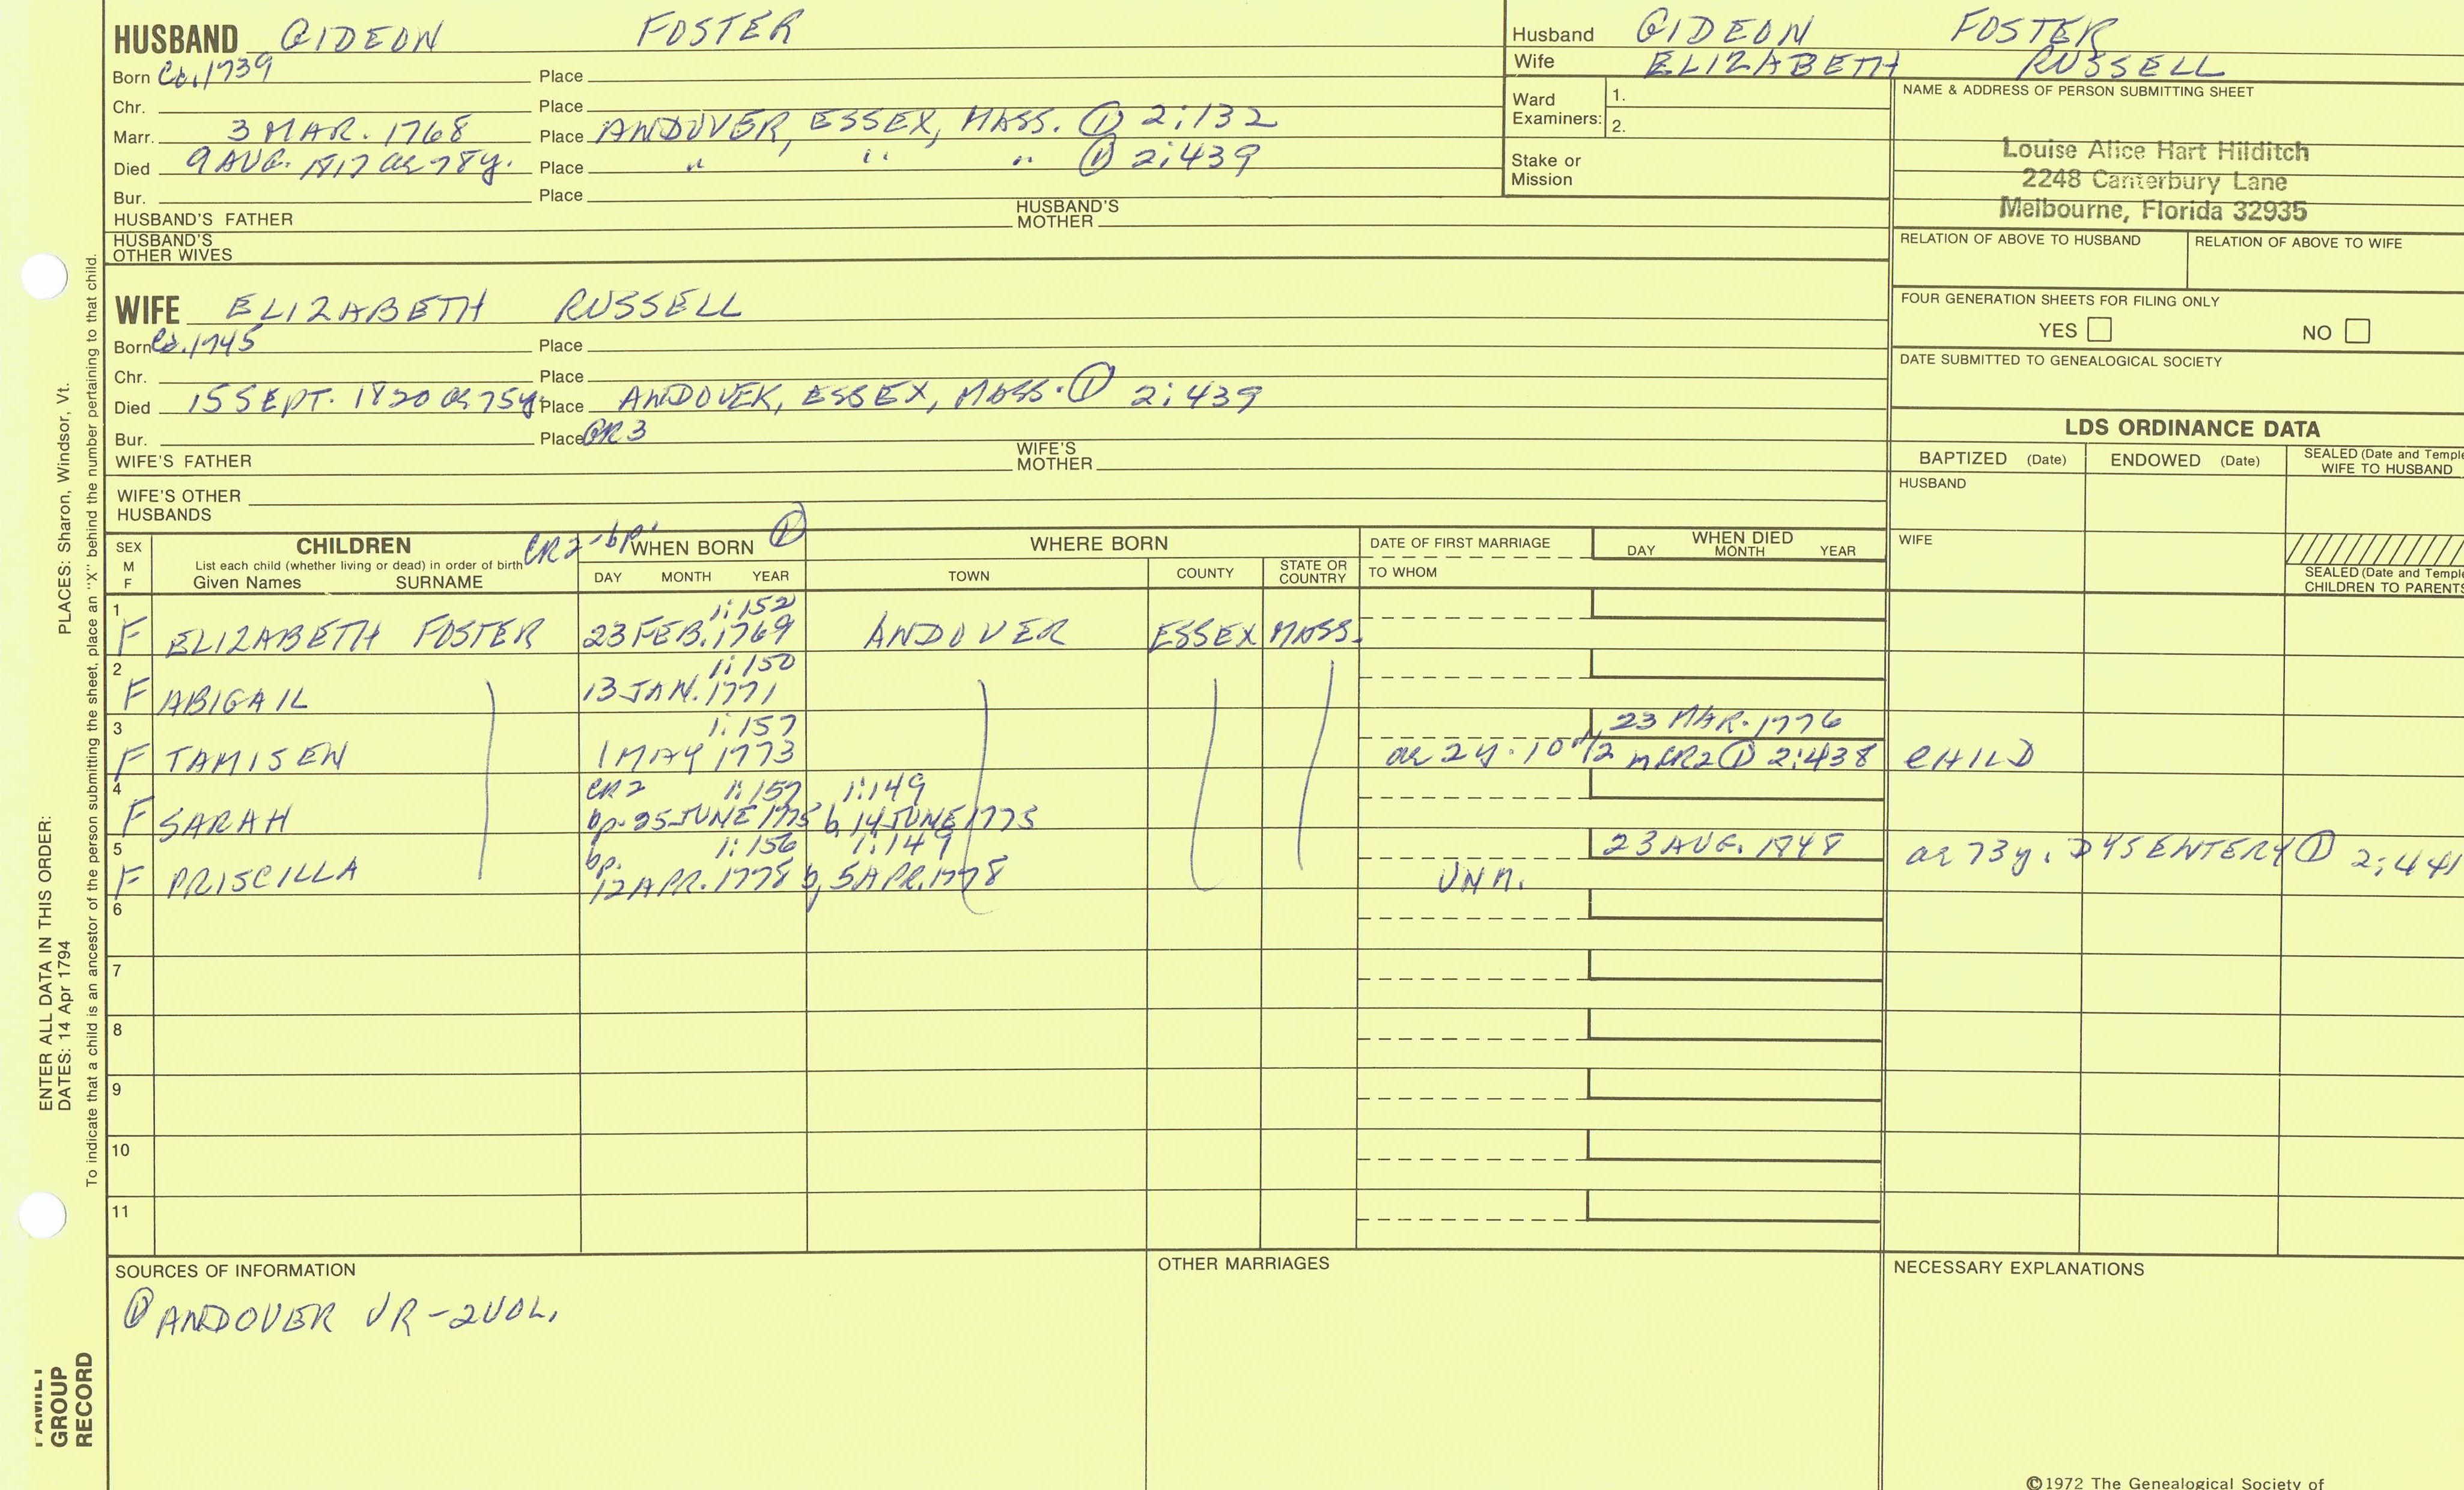 HUSBAND GIDEON FOSTER
Born Ca. 1739 Place
Chr. Place
Marr. 3 MAR. 1768 Place ANDOVER, ESSEX, MASS. ① 2:132
Died 9 AUG. 1817 ae 78y. Place " " " ① 2:439
Bur. Place
HUSBAND'S FATHER HUSBAND'S MOTHER
HUSBAND'S
OTHER WIVES
WIFE ELIZABETH RUSSELL
Born Ca. 1745 Place
Chr. Place
Died 15 SEPT. 1820 ae 75y. Place ANDOVER, ESSEX, MASS. ① 2:439
Bur. Place GR3
WIFE'S FATHER WIFE'S MOTHER
WIFE'S OTHER
HUSBANDS
Husband GIDEON FOSTER
Wife ELIZABETH RUSSELL
Ward Examiners: 1.
2.
Stake or
Mission
NAME & ADDRESS OF PERSON SUBMITTING SHEET
Louise Alice Hart Hilditch
2248 Canterbury Lane
Melbourne, Florida 32935
RELATION OF ABOVE TO HUSBAND RELATION OF ABOVE TO WIFE
FOUR GENERATION SHEETS FOR FILING ONLY
YES NO
DATE SUBMITTED TO GENEALOGICAL SOCIETY
LDS ORDINANCE DATA
BAPTIZED (Date) ENDOWED (Date) SEALED (Date and Temple
WIFE TO HUSBAND
HUSBAND
WIFE
SEALED (Date and Temple
CHILDREN TO PARENTS
SEX
M
F
CHILDREN
List each child (whether living or dead) in order of birth
Given Names SURNAME
CR2-bp. WHEN BORN ①
DAY MONTH YEAR
WHERE BORN
TOWN COUNTY STATE OR COUNTRY
DATE OF FIRST MARRIAGE
TO WHOM
WHEN DIED
DAY MONTH YEAR
1 1:152
F ELIZABETH FOSTER 23 FEB. 1769 ANDOVER ESSEX MASS.
2 1:150
F ABIGAIL 13 JAN. 1771
3 1:157 23 MAR. 1776
F TAMISEN 1 MAY 1773 ae 2y. 10 1/2 m CR2 ① 2:438 CHILD
4 CR2 1:157 1:149
F SARAH bp. 25 JUNE 1775 b, 14 JUNE 1775
5 bp. 1:156 1:149 23 AUG. 1848 ae 73y. DYSENTERY ① 2:441
F PRISCILLA 12 APR. 1778 b, 5 APR. 1778 UNM.
6
7
8
9
10
11
SOURCES OF INFORMATION
① ANDOVER VR-2VOL.
OTHER MARRIAGES
NECESSARY EXPLANATIONS
©1972 The Genealogical Society of
PLACES: Sharon, Windsor, Vt.
ENTER ALL DATA IN THIS ORDER:
DATES: 14 Apr 1794
To indicate that a child is an ancestor of the person submitting the sheet, place an "X" behind the number pertaining to that child.
FAMILY
GROUP
RECORD